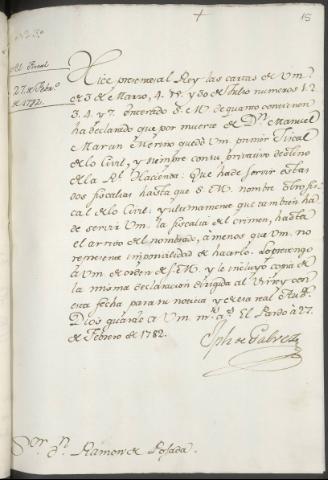 15
Al Fiscal
27. de Febr.o
de 1782.
Hice presente al Rey las cartas de Vm.
de 3 de Marzo, 4. 15. y 30 de Julio numeros 1. 2
3. 4. y 7. Enterado S. M. de quanto contienen
ha declarado que por muerte de D.n Manuel
Martin Merino quedó Vm. primer Fiscal
de lo Civil, y siempre con su privativo destino
de la R.l Hacienda: Que hade servir estas
dos fiscalias hasta que S. M. nombre otro fis-
cal de lo Civil: y ultimamente que tambien ha
de servir Vm. la fiscalia del crimen, hasta
el arrivo del nombrado, a menos que Vm. no
represente imposibilidad de hacerlo. Lo prevengo
à Vm. de orden de S. M. y le incluyo copia de
la misma declaracion dirigida al Virrey con
esta fecha para su noticia y de esa real Aud.a
Dios guarde à Vm. m.s a.s El Pardo à 27.
de Febrero de 1782.
Jph de Galvez
S.or D.n Ramon de Posada.